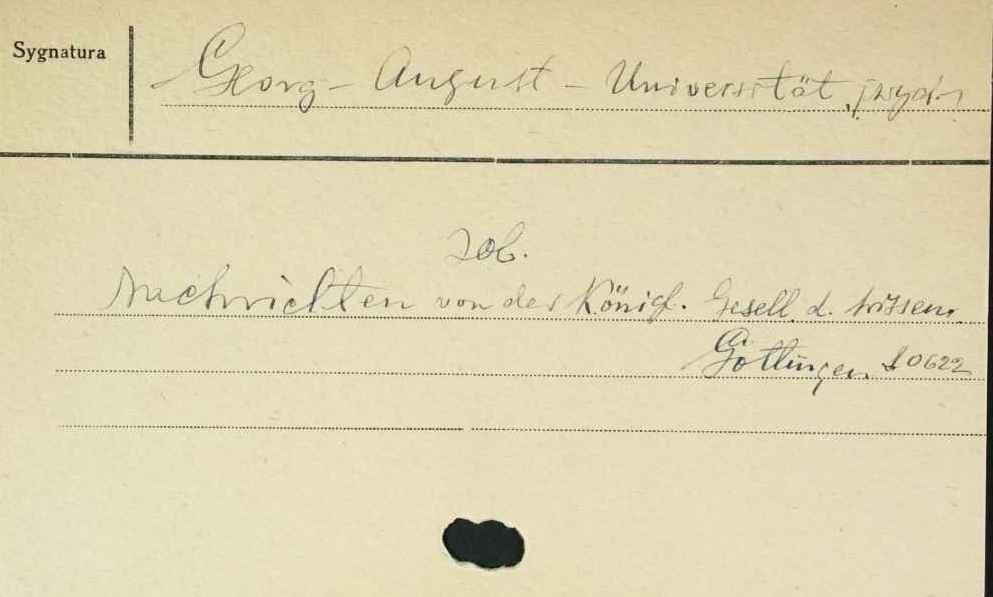 Sygnatura
Georg-August-Universität, [wyd.]
zob.
Nachrichten von der Königl. Gesell. d. Wissen.
Göttingen 10622